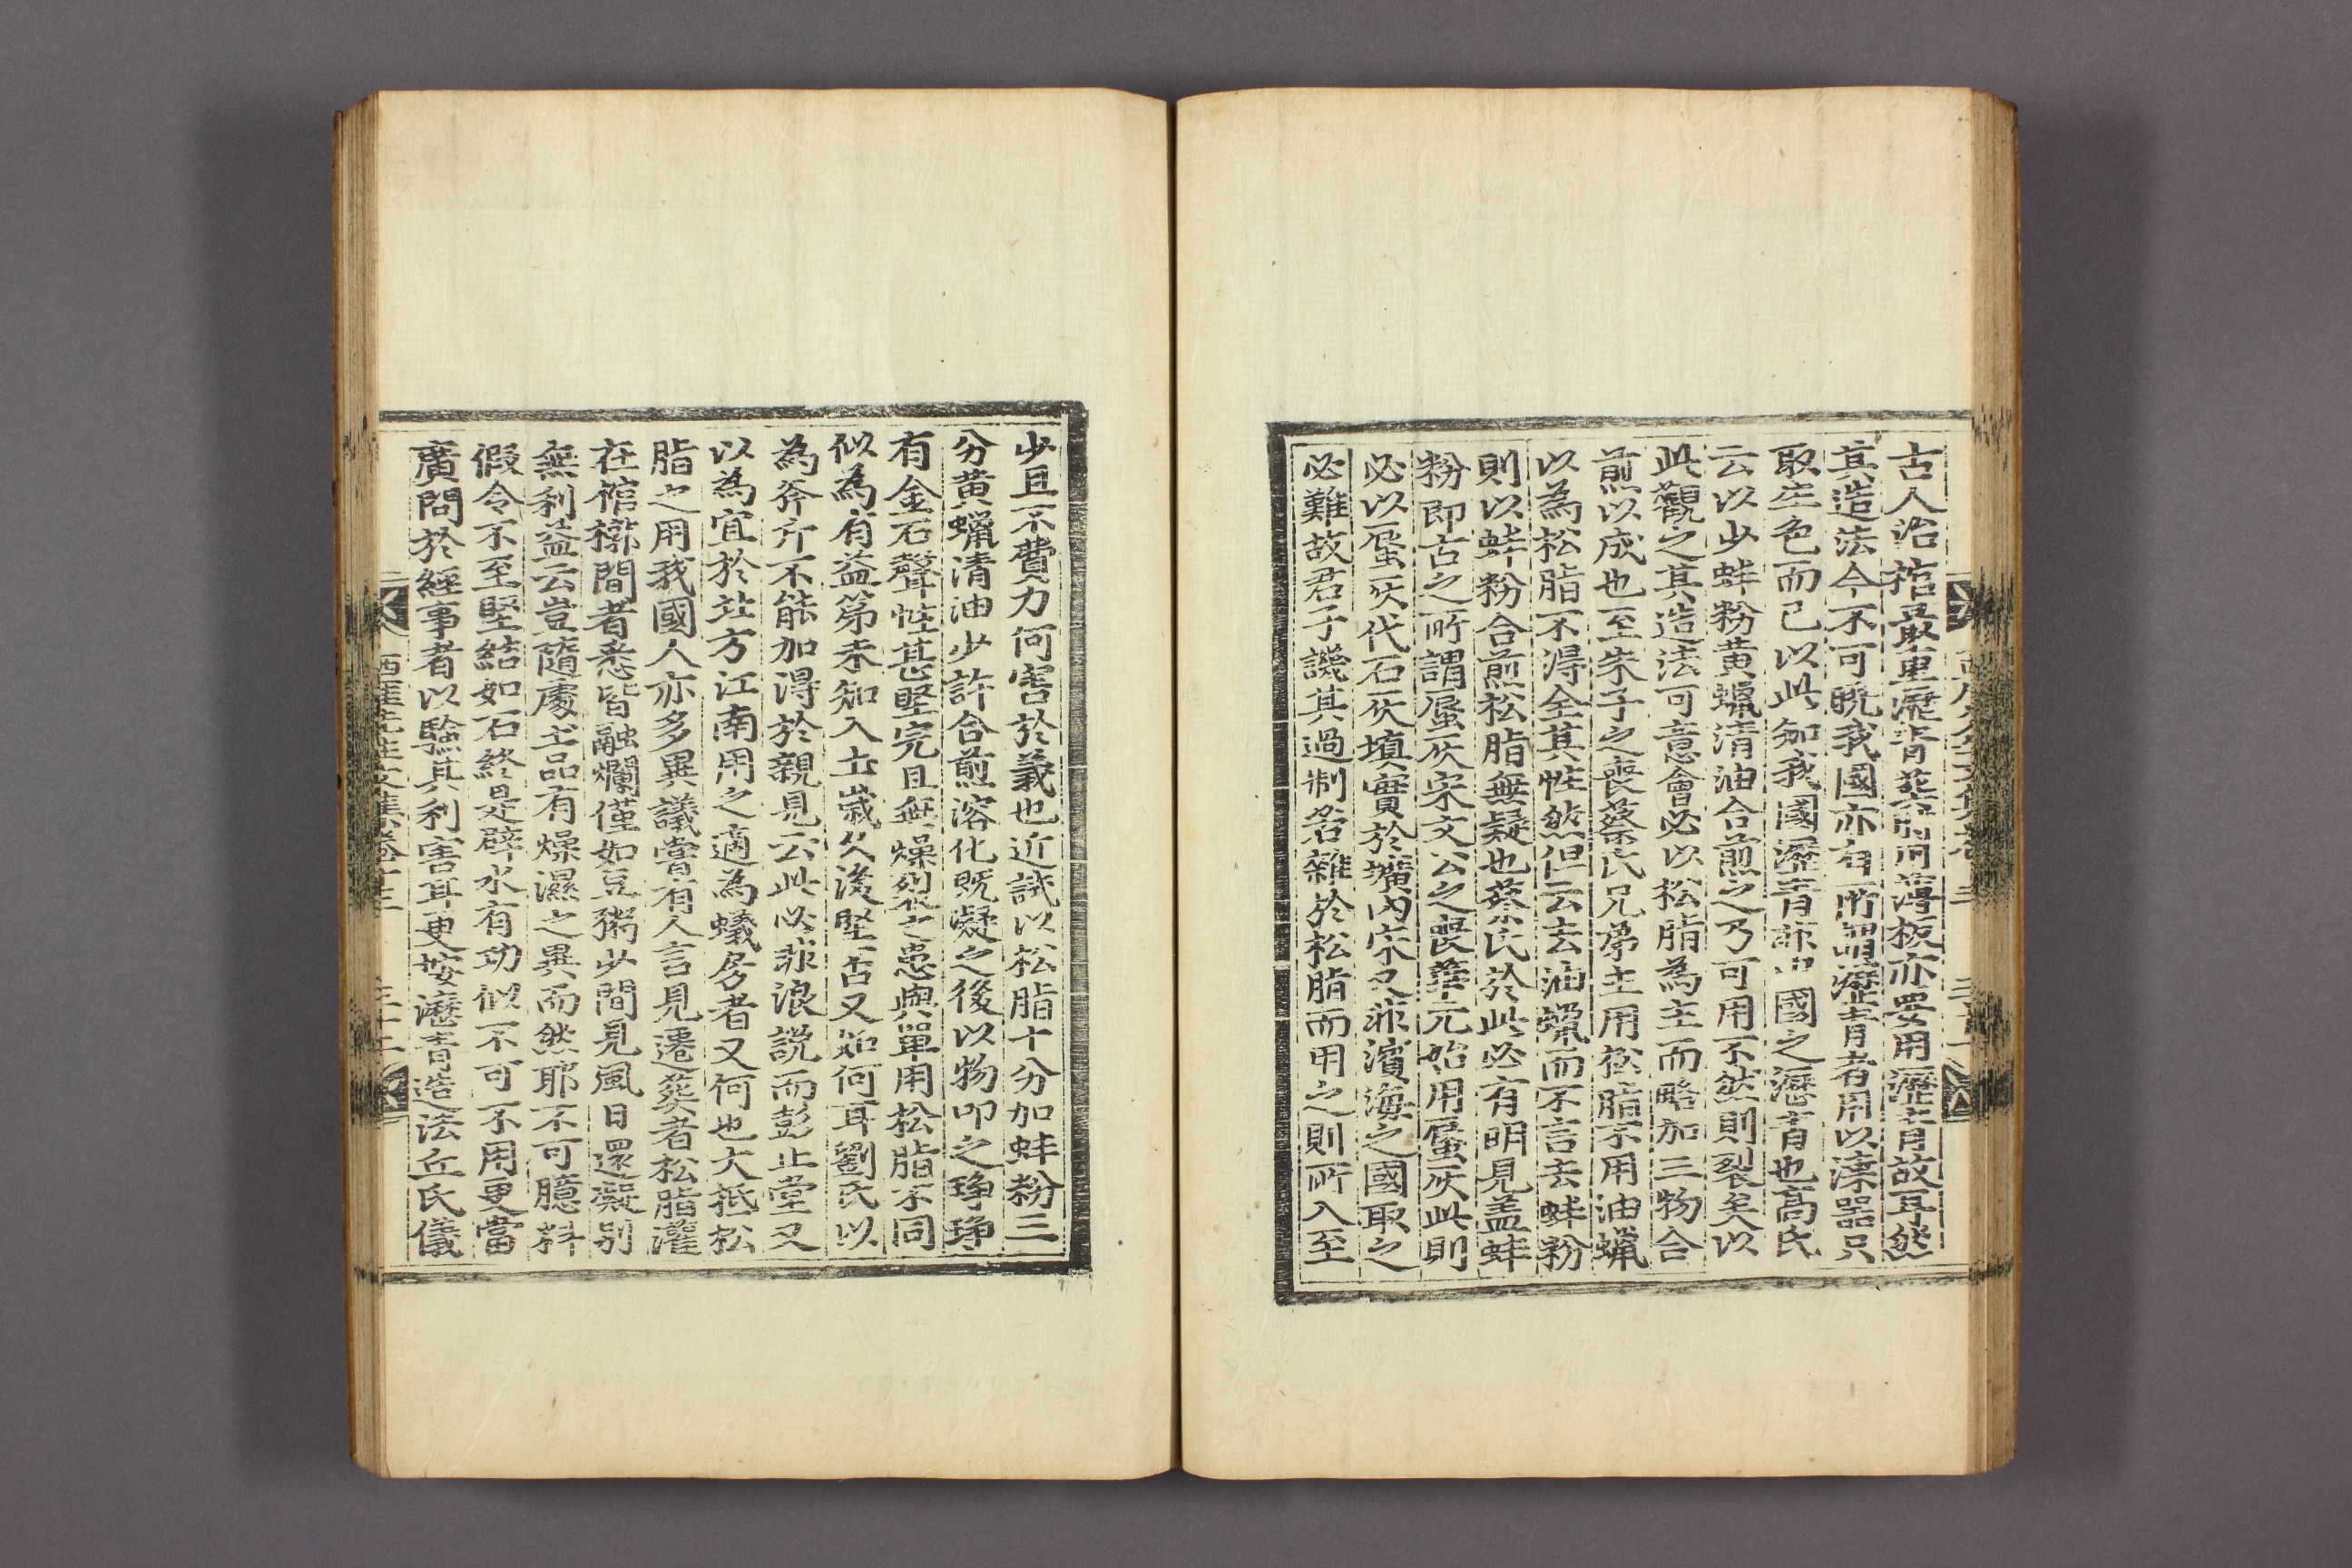 古人治棺最重瀝青葬用薄板亦要用瀝青故耳然
其造法今不可曉我國亦有所謂瀝青者用以漆器只
取庄色而已以此知我國瀝青非中國之瀝青也高氏
云以少蚌粉黄蠟清油合煎之乃可用不然則裂矣以
此觀之其造法可意會必以松脂為主而略加三物合
煎以成也至朱子之喪蔡氏兄弟主用松脂不用油蠟
以為松脂不得全其性然但云去油蠟而不言去蚌粉
則以蚌粉合煎松脂無疑也蔡氏於此必有明見盖蚌
粉即古之所謂蜃灰宋文公之喪華元始用蜃灰此則
必以蜃灰代石灰塡實於壙內宋又非濱海之國取之
必難故君子譏其過制若雜於松脂而用之則所入至
少且不費力何害於義也近試以松脂十分加蚌粉三
分黄蠟清油少許合煎溶化旣凝之後以物叩之琤琤
有金石聲性甚堅完且無燥裂之患與單用松脂不同
似為有益第未知入土歲久後堅否又如何耳劉氏以
為斧斤不能加得於親見云此必非浪說而彭止堂又
以為宜於北方江南用之適為蟻房者又何也大抵松
脂之用我國人亦多異議嘗有人言見遷葬者松脂灌
在棺槨間者悉皆融爛僅如豆粥少間見風日還凝别
無利益云豈隨處土品有燥濕之異而然耶不可臆料
假令不至堅結如石終是辟水有功似不可不用更當
廣問於經事者以驗其利害耳更按瀝青造法丘氏儀
西厓先生文集卷之十三